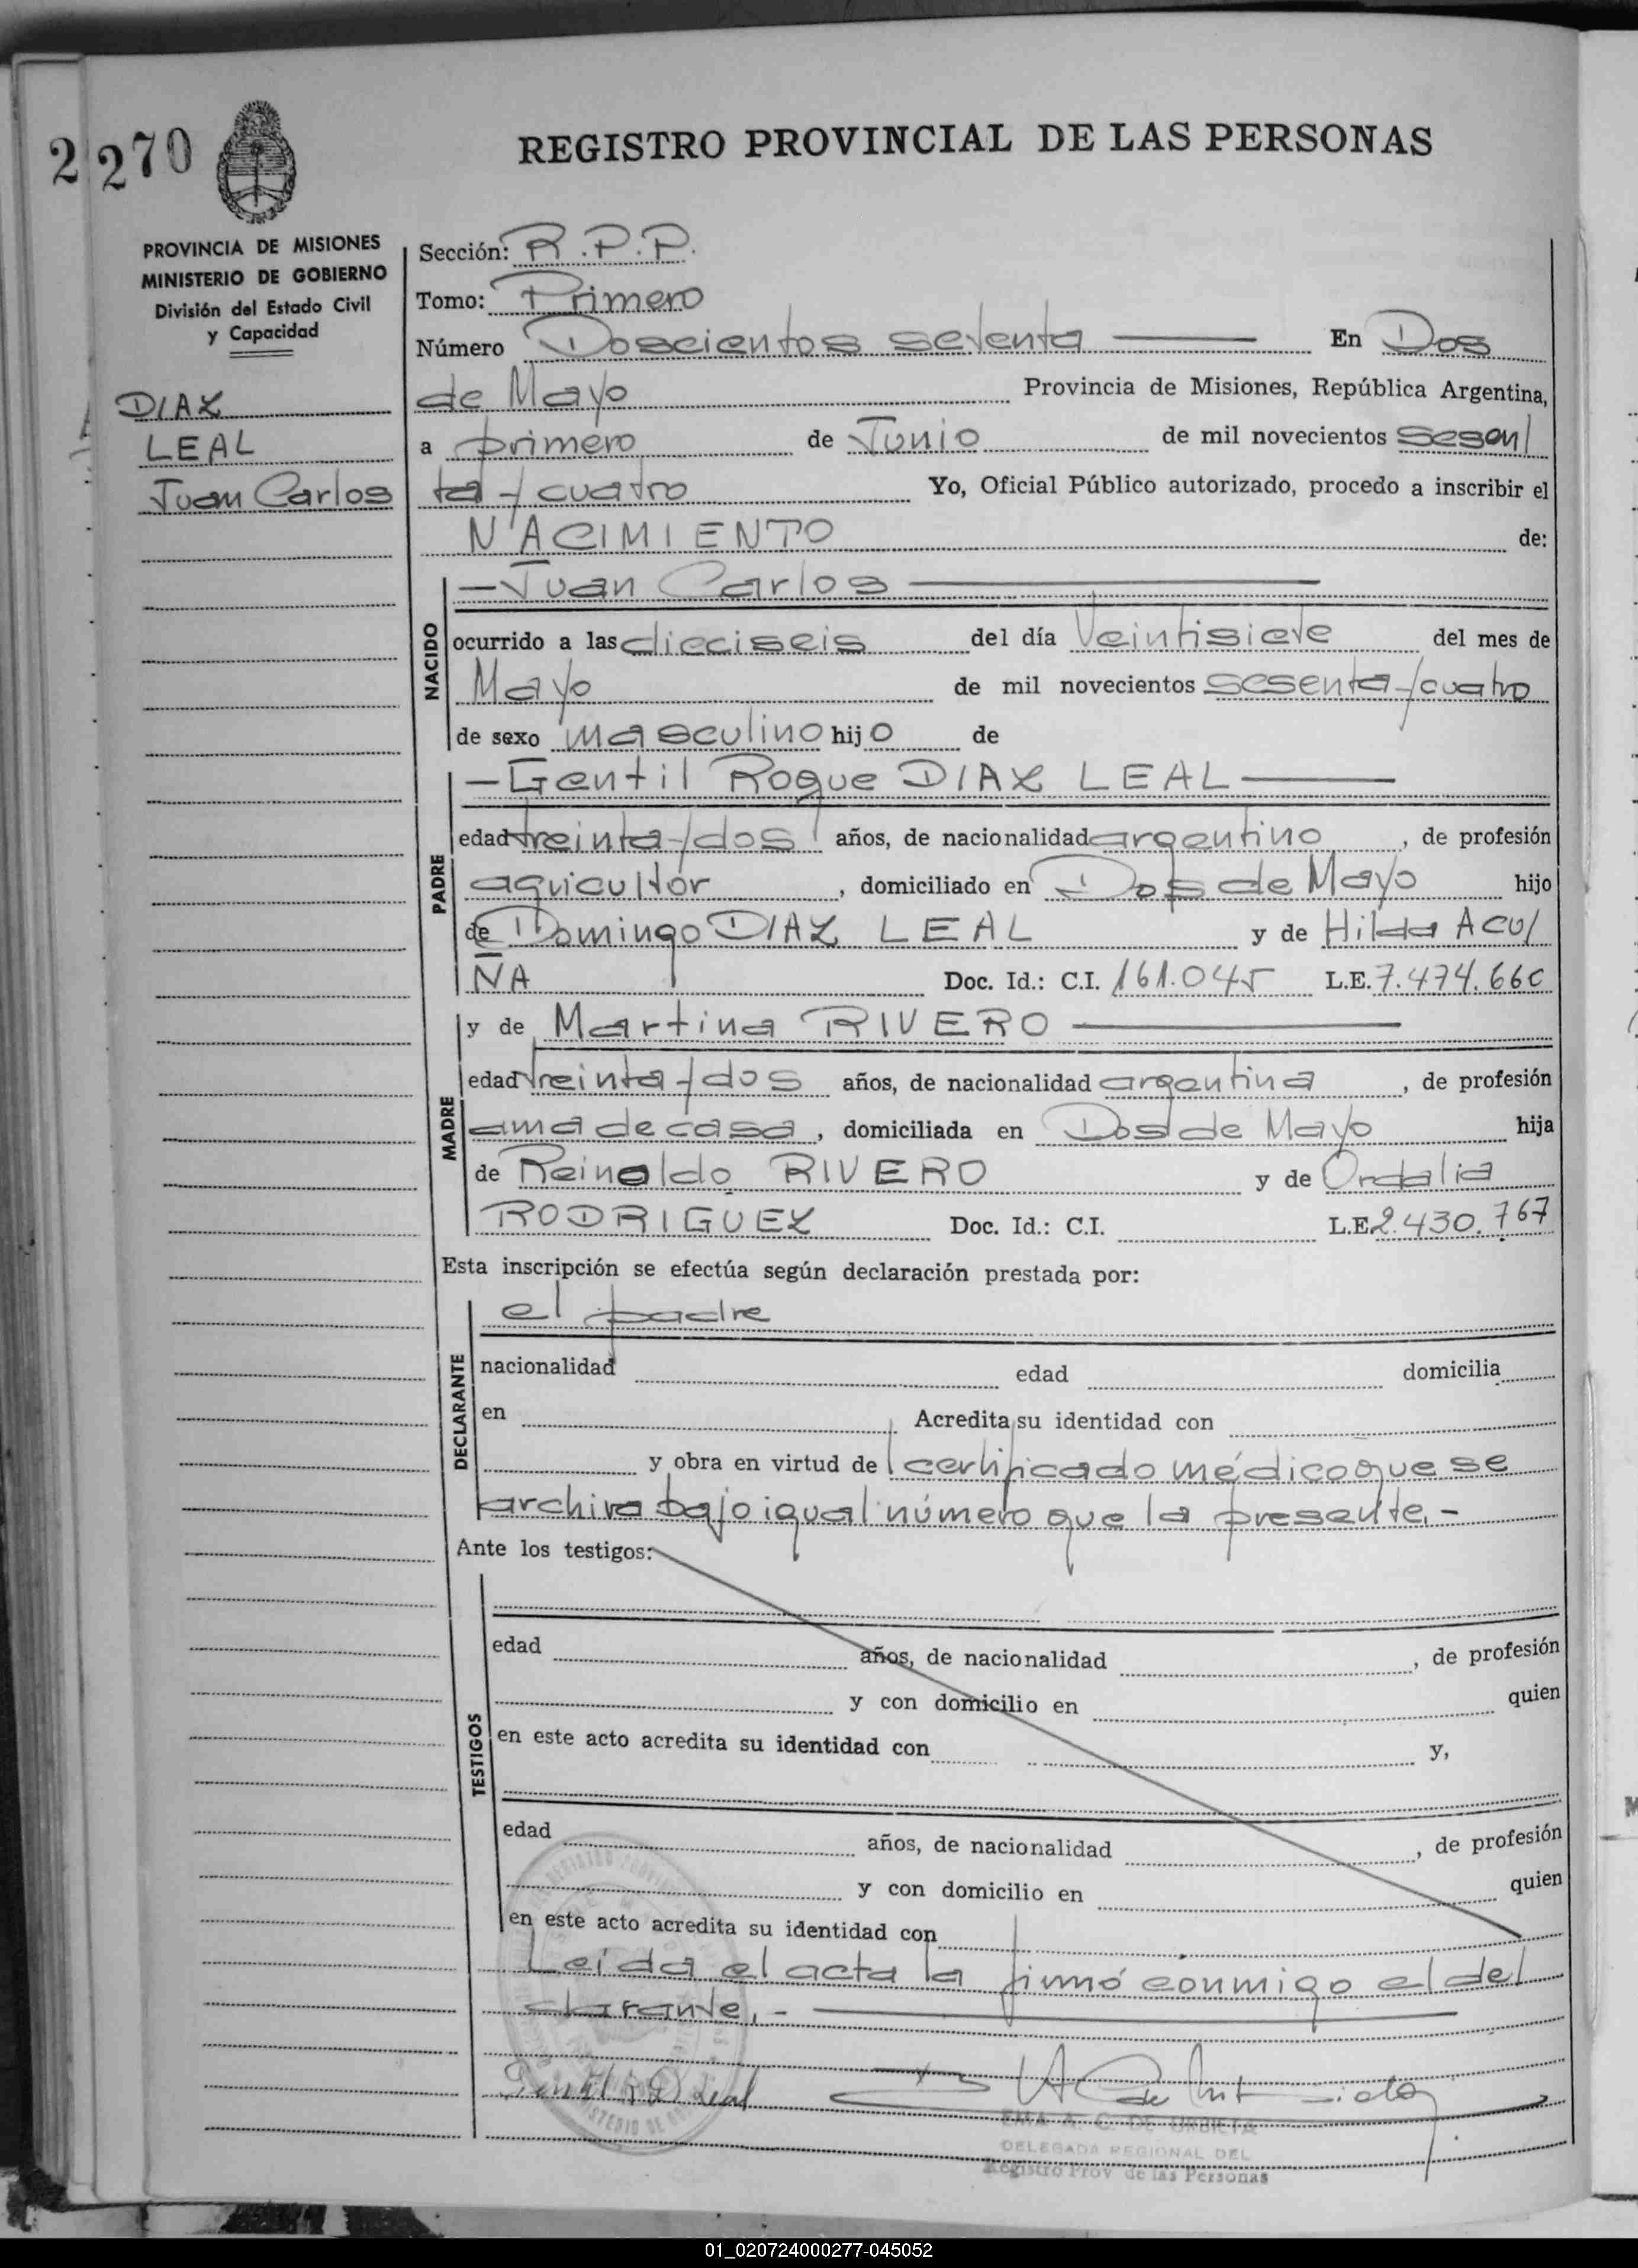 2 270
REGISTRO PROVINCIAL DE LAS PERSONAS
PROVINCIA DE MISIONES
MINISTERIO DE GOBIERNO
División del Estado Civil
y Capacidad
DIAZ
LEAL
Juan Carlos
Sección: R.P.P.
Tomo: Primero
Número Doscientos setenta En Dos
de Mayo Provincia de Misiones, República Argentina,
a primero de Junio de mil novecientos sesen/
ta y cuatro Yo, Oficial Público autorizado, procedo a inscribir el
NACIMIENTO de:
NACIDO
—Juan Carlos—
ocurrido a las dieciseis del día Veintisiete del mes de
Mayo de mil novecientos sesenta y cuatro
de sexo masculino hijo de
PADRE
—Gentil Roque DIAZ LEAL—
edad treinta y dos años, de nacionalidad argentino, de profesión
agricultor, domiciliado en Dos de Mayo hijo
de Domingo DIAZ LEAL y de Hilda ACU/
ÑA Doc. Id.: C.I. 161.045 L.E. 7.474.660
MADRE
y de Martina RIVERO
edad treinta y dos años, de nacionalidad argentina, de profesión
ama de casa, domiciliada en Dos de Mayo hija
de Reinaldo RIVERO y de Ordalia
RODRIGUEZ Doc. Id.: C.I. L.E. 2.430.767
Esta inscripción se efectúa según declaración prestada por:
DECLARANTE
el padre
nacionalidad edad domicilia
en Acredita su identidad con
y obra en virtud de certificado médico que se
archiva bajo igual número que la presente.-
Ante los testigos:
TESTIGOS
edad años, de nacionalidad , de profesión
y con domicilio en quien
en este acto acredita su identidad con y,
edad años, de nacionalidad , de profesión
y con domicilio en quien
en este acto acredita su identidad con
Leída el acta la firmó conmigo el de/
clarante.-
Gentil R D Leal
EMA A. C. DE URBIETA
DELEGADA REGIONAL DEL
Registro Prov de las Personas
01_020724000277-045052